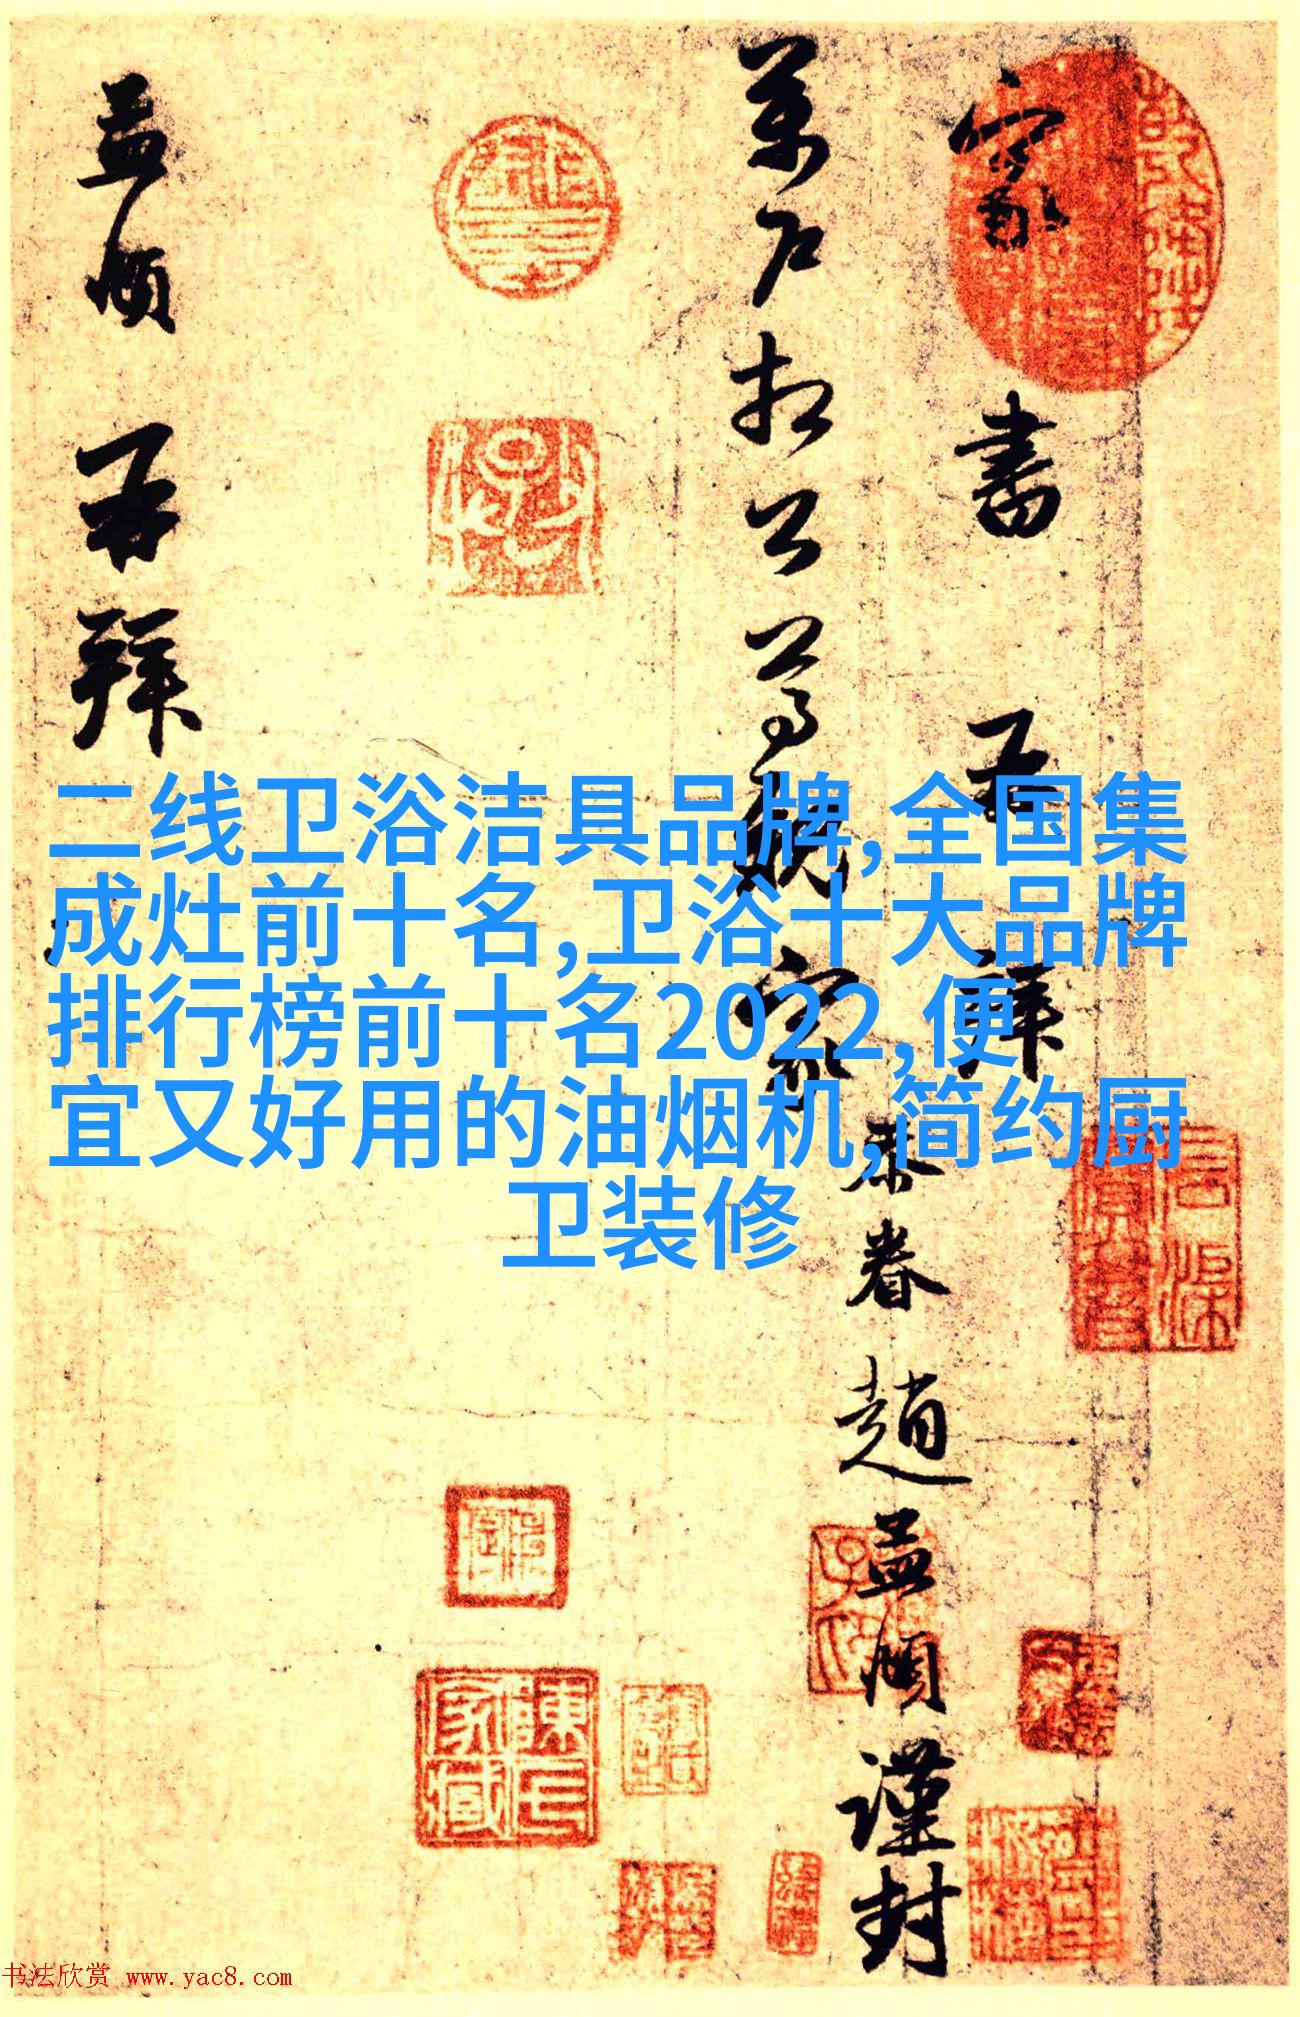 家書再拜
萬戶相公尊親家
忝眷趙孟頫謹封
孟頫再拜
二线卫浴洁具品牌,全国集
成灶前十名,卫浴十大品牌
排行榜前十名2022,便
宜又好用的油烟机,简约厨
卫装修
陳氏家藏
书法欣赏 www.yac8.com